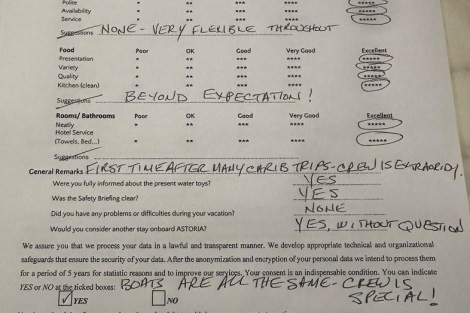 Polite * ** *** **** *****
Availability * ** *** **** *****
Service * ** *** **** *****
Suggestions NONE - VERY FLEXIBLE THROUGHOUT
Food Poor OK Good Very Good Excellent
Presentation * ** *** **** *****
Variety * ** *** **** *****
Quality * ** *** **** *****
Kitchen (clean) * ** *** **** *****
Suggestions BEYOND EXPECTATION!
Rooms/ Bathrooms Poor OK Good Very Good Excellent
Neatly * ** *** **** *****
Hotel Service
(Towels, Bed...) * ** *** **** *****
Suggestions
General Remarks FIRST TIME AFTER MANY CARIB TRIPS - CREW IS EXTRAORIDY.
Were you fully informed about the present water toys? YES
Was the Safety Briefing clear? YES
Did you have any problems or difficulties during your vacation? NONE
Would you consider another stay onboard ASTORIA? YES, WITHOUT QUESTION
We assure you that we process your data in a lawful and transparent manner. We develop appropriate technical and organizational
safeguards that ensure the security of your data. After the anonymization and encryption of your personal data we intend to process them
for a period of 5 years for statistic reasons and to improve our services. Your consent is an indispensable condition. You can indicate
YES or NO at the ticked boxes: BOATS ARE ALL THE SAME - CREW IS
SPECIAL!
YES NO